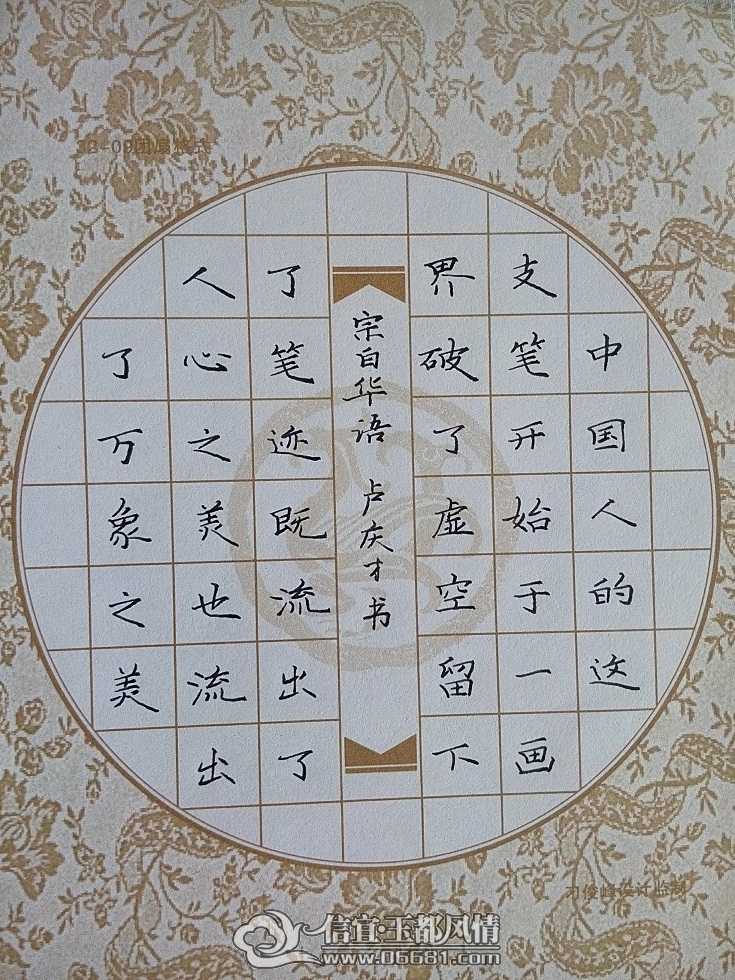 中国人的这
支笔开始于一画
界破了虚空留下
了笔迹既流出了
人心之美也流出
了万象之美
宗白华语 卢庆才书
信宜·玉都风情
www.06681.com